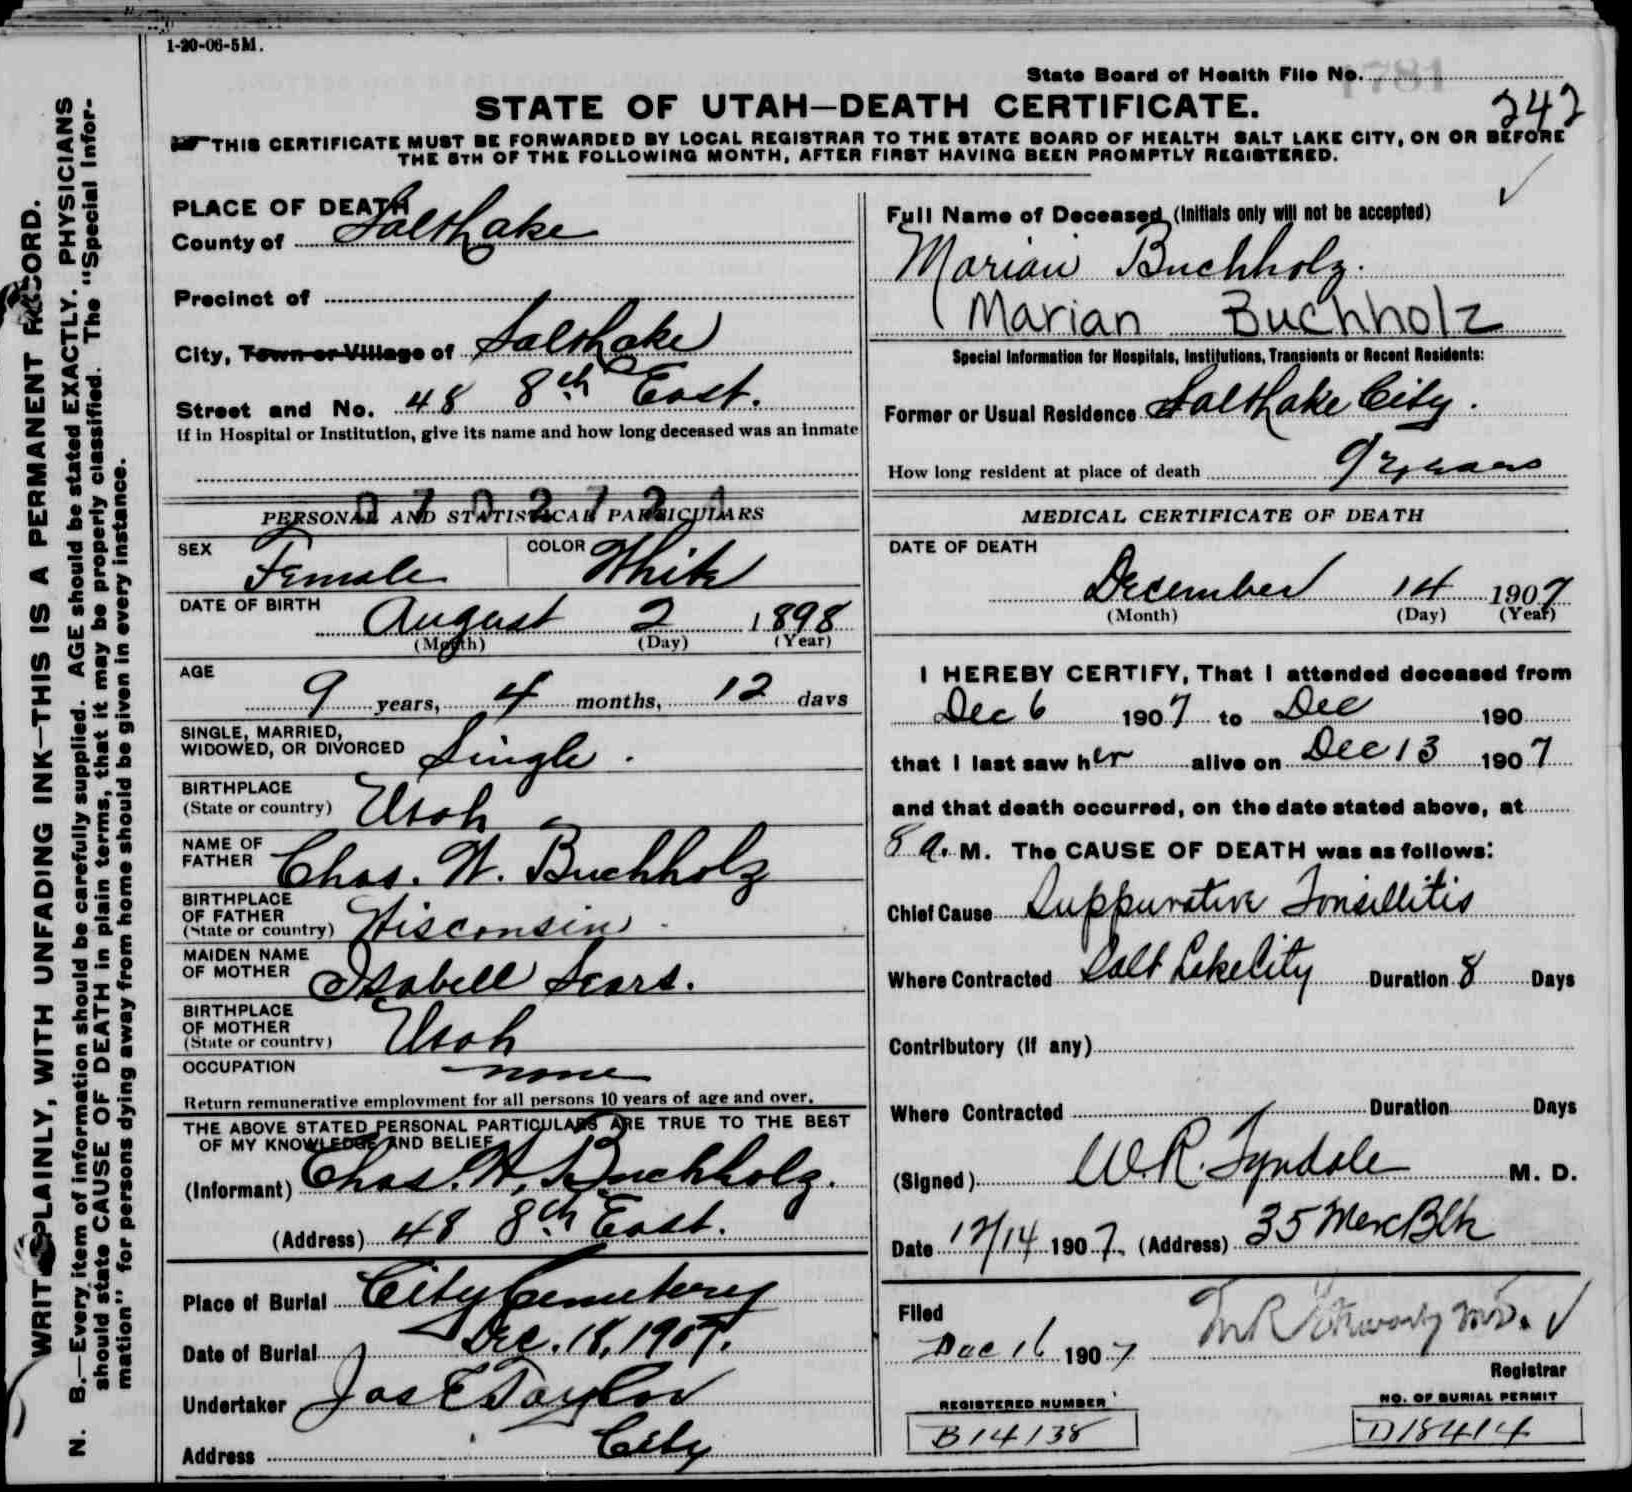 1-20-06-5M.
State Board of Health File No. 1781
STATE OF UTAH—DEATH CERTIFICATE.
242
THIS CERTIFICATE MUST BE FORWARDED BY LOCAL REGISTRAR TO THE STATE BOARD OF HEALTH SALT LAKE CITY, ON OR BEFORE
THE 5TH OF THE FOLLOWING MONTH, AFTER FIRST HAVING BEEN PROMPTLY REGISTERED.
WRITE PLAINLY, WITH UNFADING INK—THIS IS A PERMANENT RECORD.
N. B.—Every item of information should be carefully supplied. AGE should be stated EXACTLY. PHYSICIANS
should state CAUSE OF DEATH in plain terms, that it may be properly classified. The "Special Infor-
mation" for persons dying away from home should be given in every instance.
PLACE OF DEATH
County of Salt Lake
Precinct of
City, Town or Village of Salt Lake
Street and No. 48 8th East.
If in Hospital or Institution, give its name and how long deceased was an inmate
PERSONAL AND STATISTICAL PARTICULARS
SEX Female COLOR White
DATE OF BIRTH August 2 1898
(Month) (Day) (Year)
AGE 9 years, 4 months, 12 days
SINGLE, MARRIED,
WIDOWED, OR DIVORCED Single.
BIRTHPLACE
(State or country) Utah
NAME OF
FATHER Chas. W. Buchholz
BIRTHPLACE
OF FATHER
(State or country) Wisconsin
MAIDEN NAME
OF MOTHER Isabell Sears.
BIRTHPLACE
OF MOTHER
(State or country) Utah
OCCUPATION none
Return remunerative employment for all persons 10 years of age and over.
THE ABOVE STATED PERSONAL PARTICULARS ARE TRUE TO THE BEST
OF MY KNOWLEDGE AND BELIEF
(Informant) Chas. W. Buchholz.
(Address) 48 8th East.
Place of Burial City Cemetery
Date of Burial Dec. 18, 1907.
Undertaker Jos E Taylor
Address City
Full Name of Deceased (Initials only will not be accepted)
Marian Buchholz.
(Marian Buchholz
Special Information for Hospitals, Institutions, Transients or Recent Residents:
Former or Usual Residence Salt Lake City.
How long resident at place of death 9 years
MEDICAL CERTIFICATE OF DEATH
DATE OF DEATH
December 14 1907
(Month) (Day) (Year)
I HEREBY CERTIFY, That I attended deceased from
Dec 6 1907 to Dec 190
that I last saw her alive on Dec 13 1907
and that death occurred, on the date stated above, at
8 a. M. The CAUSE OF DEATH was as follows:
Chief Cause Suppurative Tonsillitis
Where Contracted Salt Lake City Duration 8 Days
Contributory (If any)
Where Contracted Duration Days
(Signed) W.R. Tyndale M. D.
Date 12/14 1907. (Address) 35 Merc Blk
Filed
Dec 16 1907
Registrar
REGISTERED NUMBER NO. OF BURIAL PERMIT
B14138 D18414